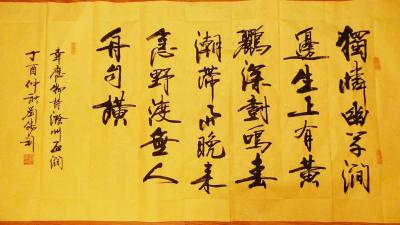 獨憐幽草澗
邊生上有黃
鸝深樹鳴春
潮帶雨晚來
急野渡無人
舟自橫
韋應物詩滁州西澗
丁酉仲秋劉